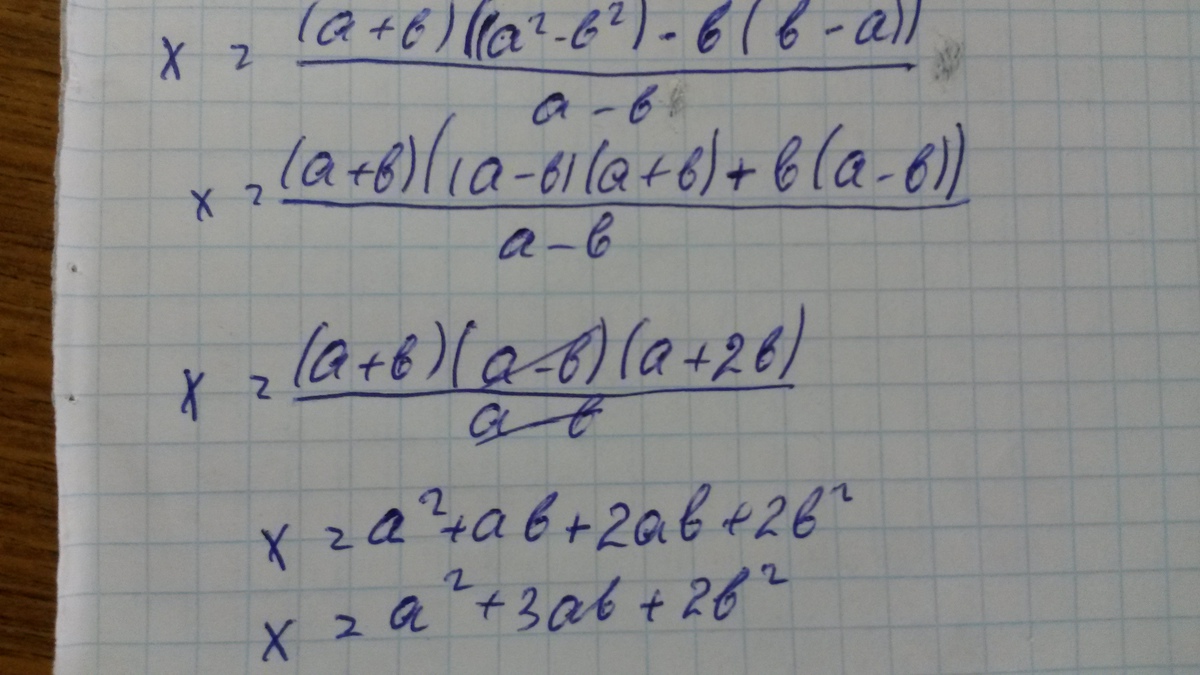 x = (a+b)((a²-b²)-b(b-a))
a-b
x = (a+b)((a-b)(a+b)+b(a-b))
a-b
x = (a+b)(a-b)(a+2b)
a-b
x = a²+ab+2ab+2b²
x = a²+3ab+2b²